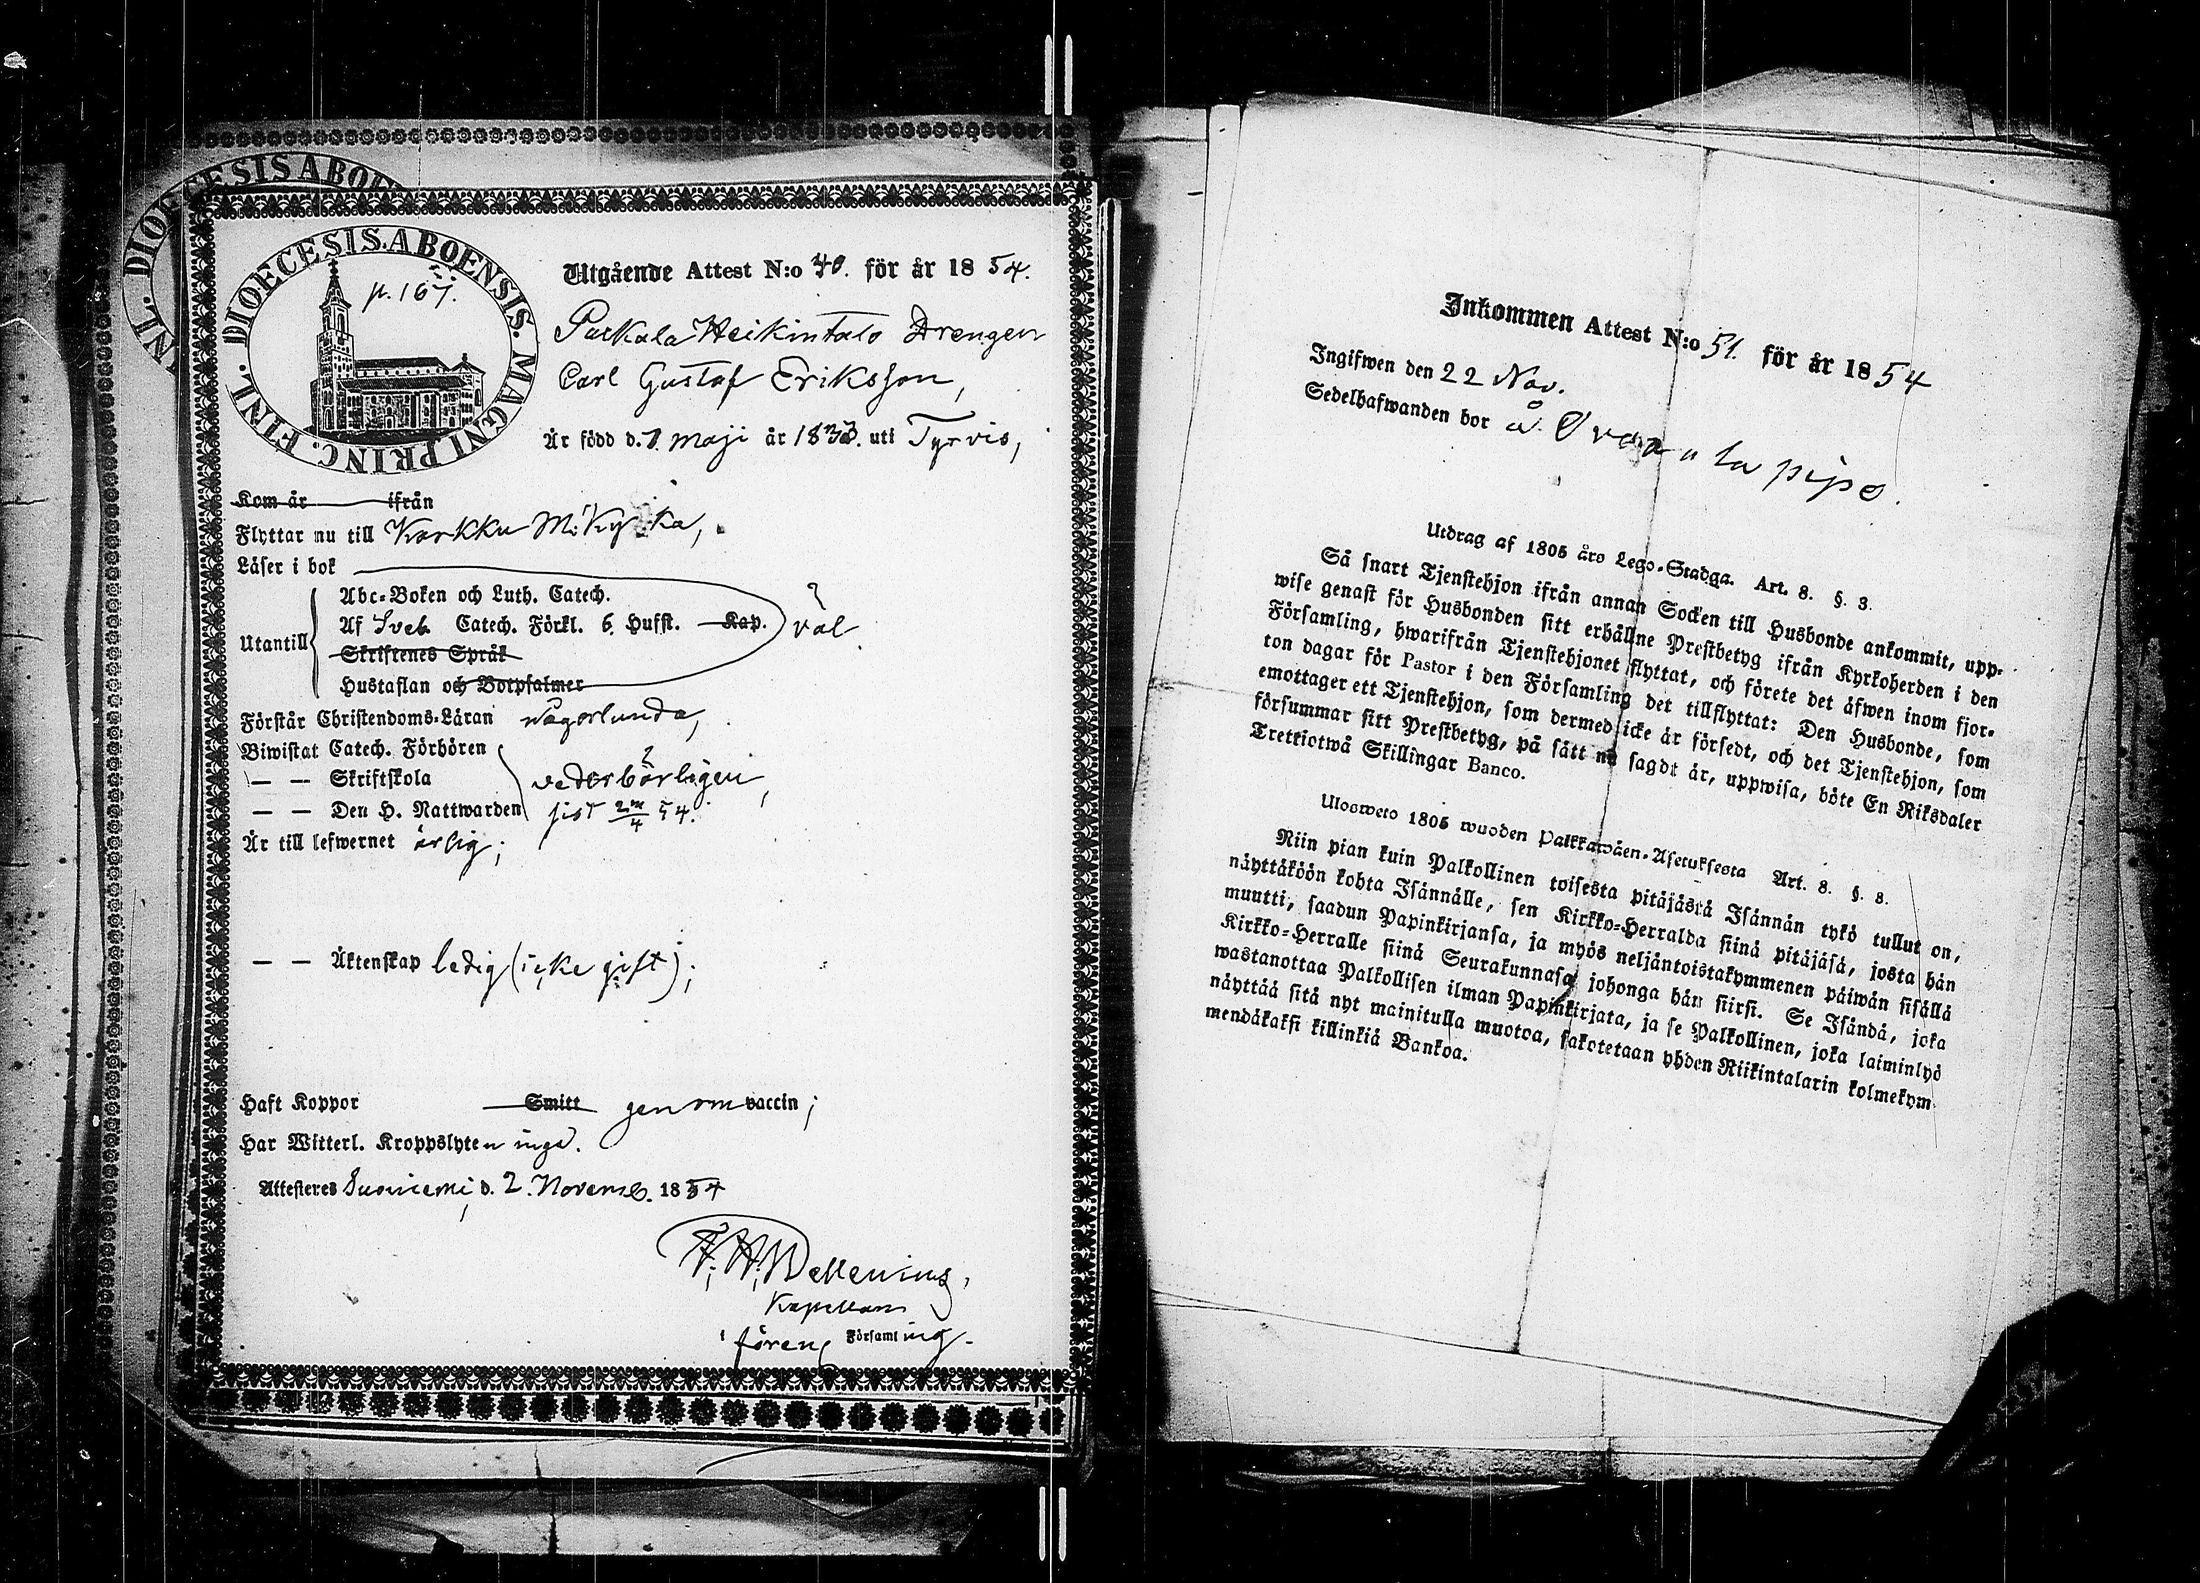 DIOECESIS ABOE
INL.
FINL. DIOECESIS. ABOENSIS. MAGNI PRINC.
p. 167.
Utgående Attest N:o 40. för år 1854.
Heikintalo Drengen
Carl Gustaf Eriksson,
Är född d. 1 maji år 1833. uti Tyrvis,
Kom år ifrån
Flyttar nu till Karkku M: Kyrka,
Läser i bok
Abc-Boken och Luth. Catech.
Utantill Af Sveb. Catech. Förkl. 6. Hufst. Kap. väl
Skriftenes Språk
Hustaflan och Botpsalmer
Förstår Christendoms-Läran någorlunda,
Biwistat Catech. Förhören
— — Skriftskola vederbörligen,
— — Den H. Nattwarden sist 54.
Är till lefwernet ärlig;
— — Äktenskap ledig (icke gift);
Haft Koppor Smitt genom vaccin;
Har Witterl. Kroppslyten inga.
Attesteres Suoniemi, d. 2. Novemb. 1854
Kapellan
i Församling.
Inkommen Attest N:o 51. för år 1854
Ingifwen den 22 Nov.
Sedelhafwanden bor å
Utdrag af 1805 års Lego-Stadga. Art. 8. §. 3.
Så snart Tjenstehjon ifrån annan Socken till Husbonde ankommit, upp-
wise genast för Husbonden sitt erhållne Prestbetyg ifrån Kyrkoherden i den
Församling, hwarifrån Tjenstehjonet flyttat, och förete det äfwen inom fjor-
ton dagar för Pastor i den Församling det tillflyttat: Den Husbonde, som
emottager ett Tjenstehjon, som dermed icke är försedt, och det Tjenstehjon, som
försummar sitt Prestbetyg, på sätt nu sagdt är, uppwisa, böte En Riksdaler
Trettiotwå Skillingar Banco.
Ulosweto 1805 wuoden Palkkawäen-Asetuksesta Art. 8. §. 8.
Niin pian kuin Palkollinen toisesta pitäjästä Isännän tykö tullut on,
näyttäköön kohta Isännälle, sen Kirkko-Herralda siinä pitäjäsä, josta hän
muutti, saadun Papinkirjansa, ja myös neljäntoistakymmenen päiwän sisällä
Kirkko-Herralle siinä Seurakunnasa johonga hän siirsi. Se Isändä, joka
wastanottaa Palkollisen ilman Papinkirjata, ja se Palkollinen, joka laiminlyö
näyttää sitä nyt mainitulla muotoa, sakotetaan yhden Riikintalarin kolmekym-
mendäkaksi killinkiä Bankoa.